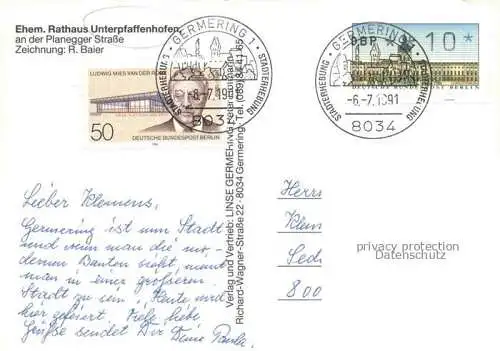 Ehem. Rathaus Unterpfaffenhofen,
an der Planegger Straße
Zeichnung: R. Baier
GERMERING 1
STADTERHEBUNG
-6.-7.1991
8034
STADTERHEBUNG
LUDWIG MIES VAN DER ROHE
50
DEUTSCHE BUNDESPOST BERLIN
GERMERING 1
STADTERHEBUNG
-6.-7.1991
8034
STADTERHEBUNG
DBP
10
Verlag und Vertrieb: LINSE GERMERING, Peter
Richard-Wagner-Straße 22 · 8034 Germering · Tel. 089/84 41 65
Lieber Klemens,
Germering ist nun Stadt
und wenn man die mo-
dernen Bauten sieht, meint
man in einer größeren
Stadt zu sein, Heute wird
hier gefeiert. Viele liebe
Grüße sendet Dir Deine Paula.
Herrn
Klem
Sed
800
privacy protection
Datenschutz